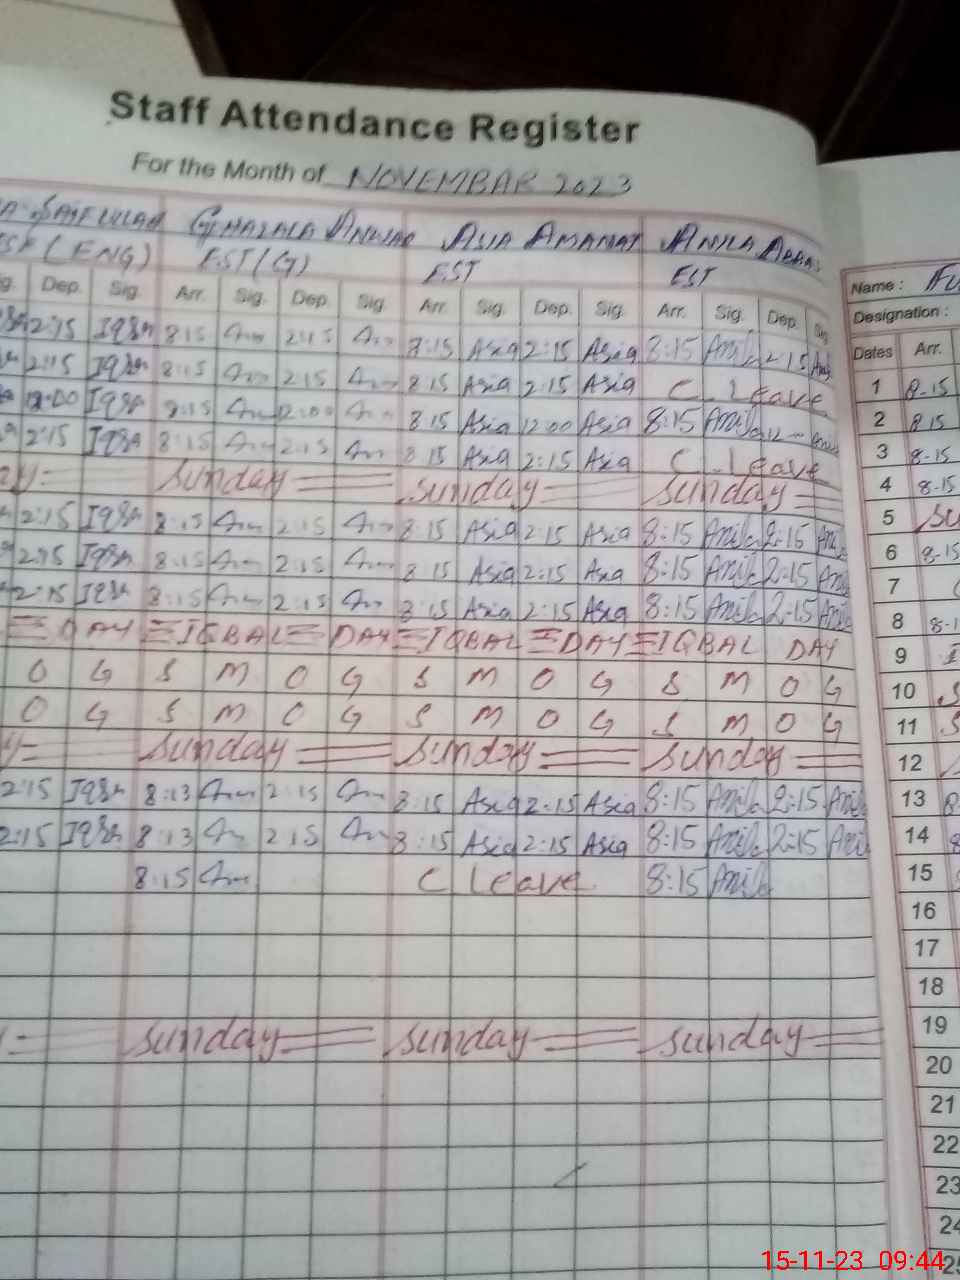 Staff Attendance Register
For the Month of NOVEMBAR 2023
SAIFULLAH GHAZALA ANWAR ASIA AMANAT ANILA ABBAS
(ENG) EST (G) EST EST
Name :
Designation :
Dep. Sig. Arr. Sig. Dep. Sig. Arr. Sig. Dep. Sig. Arr. Sig. Dep. Sig.
Dates Arr.
2:15 IQRA 8:15 2:15 8:15 Asia 2:15 Asia 8:15 Anila 2:15
1 8-15
2:15 IQRA 8:15 2:15 8:15 Asia 2:15 Asia C. Leave
2 8 15
12:00 IQRA 8:15 12:00 8:15 Asia 12:00 Asia 8:15 Anila 12
3 8-15
2:15 IQRA 8:15 2:15 8:15 Asia 2:15 Asia C. Leave
4 8-15
Sunday Sunday Sunday
5 SU
2:15 IQRA 8:15 2:15 8:15 Asia 2:15 Asia 8:15 Anila 2:15 Anila
6 8-15
2:15 IQRA 8:15 2:15 8:15 Asia 2:15 Asia 8:15 Anila 2:15 Anila
7
2:15 IQRA 8:15 2:15 8:15 Asia 2:15 Asia 8:15 Anila 2:15 Anila
8 8-1
DAY IQBAL DAY IQBAL DAY IQBAL DAY
9 I
O G S M O G S M O G S M O G
10 S
O G S M O G S M O G S M O G
11 S
Sunday Sunday Sunday
12
2:15 IQRA 8:13 2:15 8:15 Asia 2:15 Asia 8:15 Anila 2:15 Anila
13 8
2:15 IQRA 8:13 2:15 8:15 Asia 2:15 Asia 8:15 Anila 2:15 Anila
14 8
8:15 C Leave 8:15 Anila
15
16
17
18
Sunday Sunday Sunday
19
20
21
22
23
24
25
15-11-23 09:44